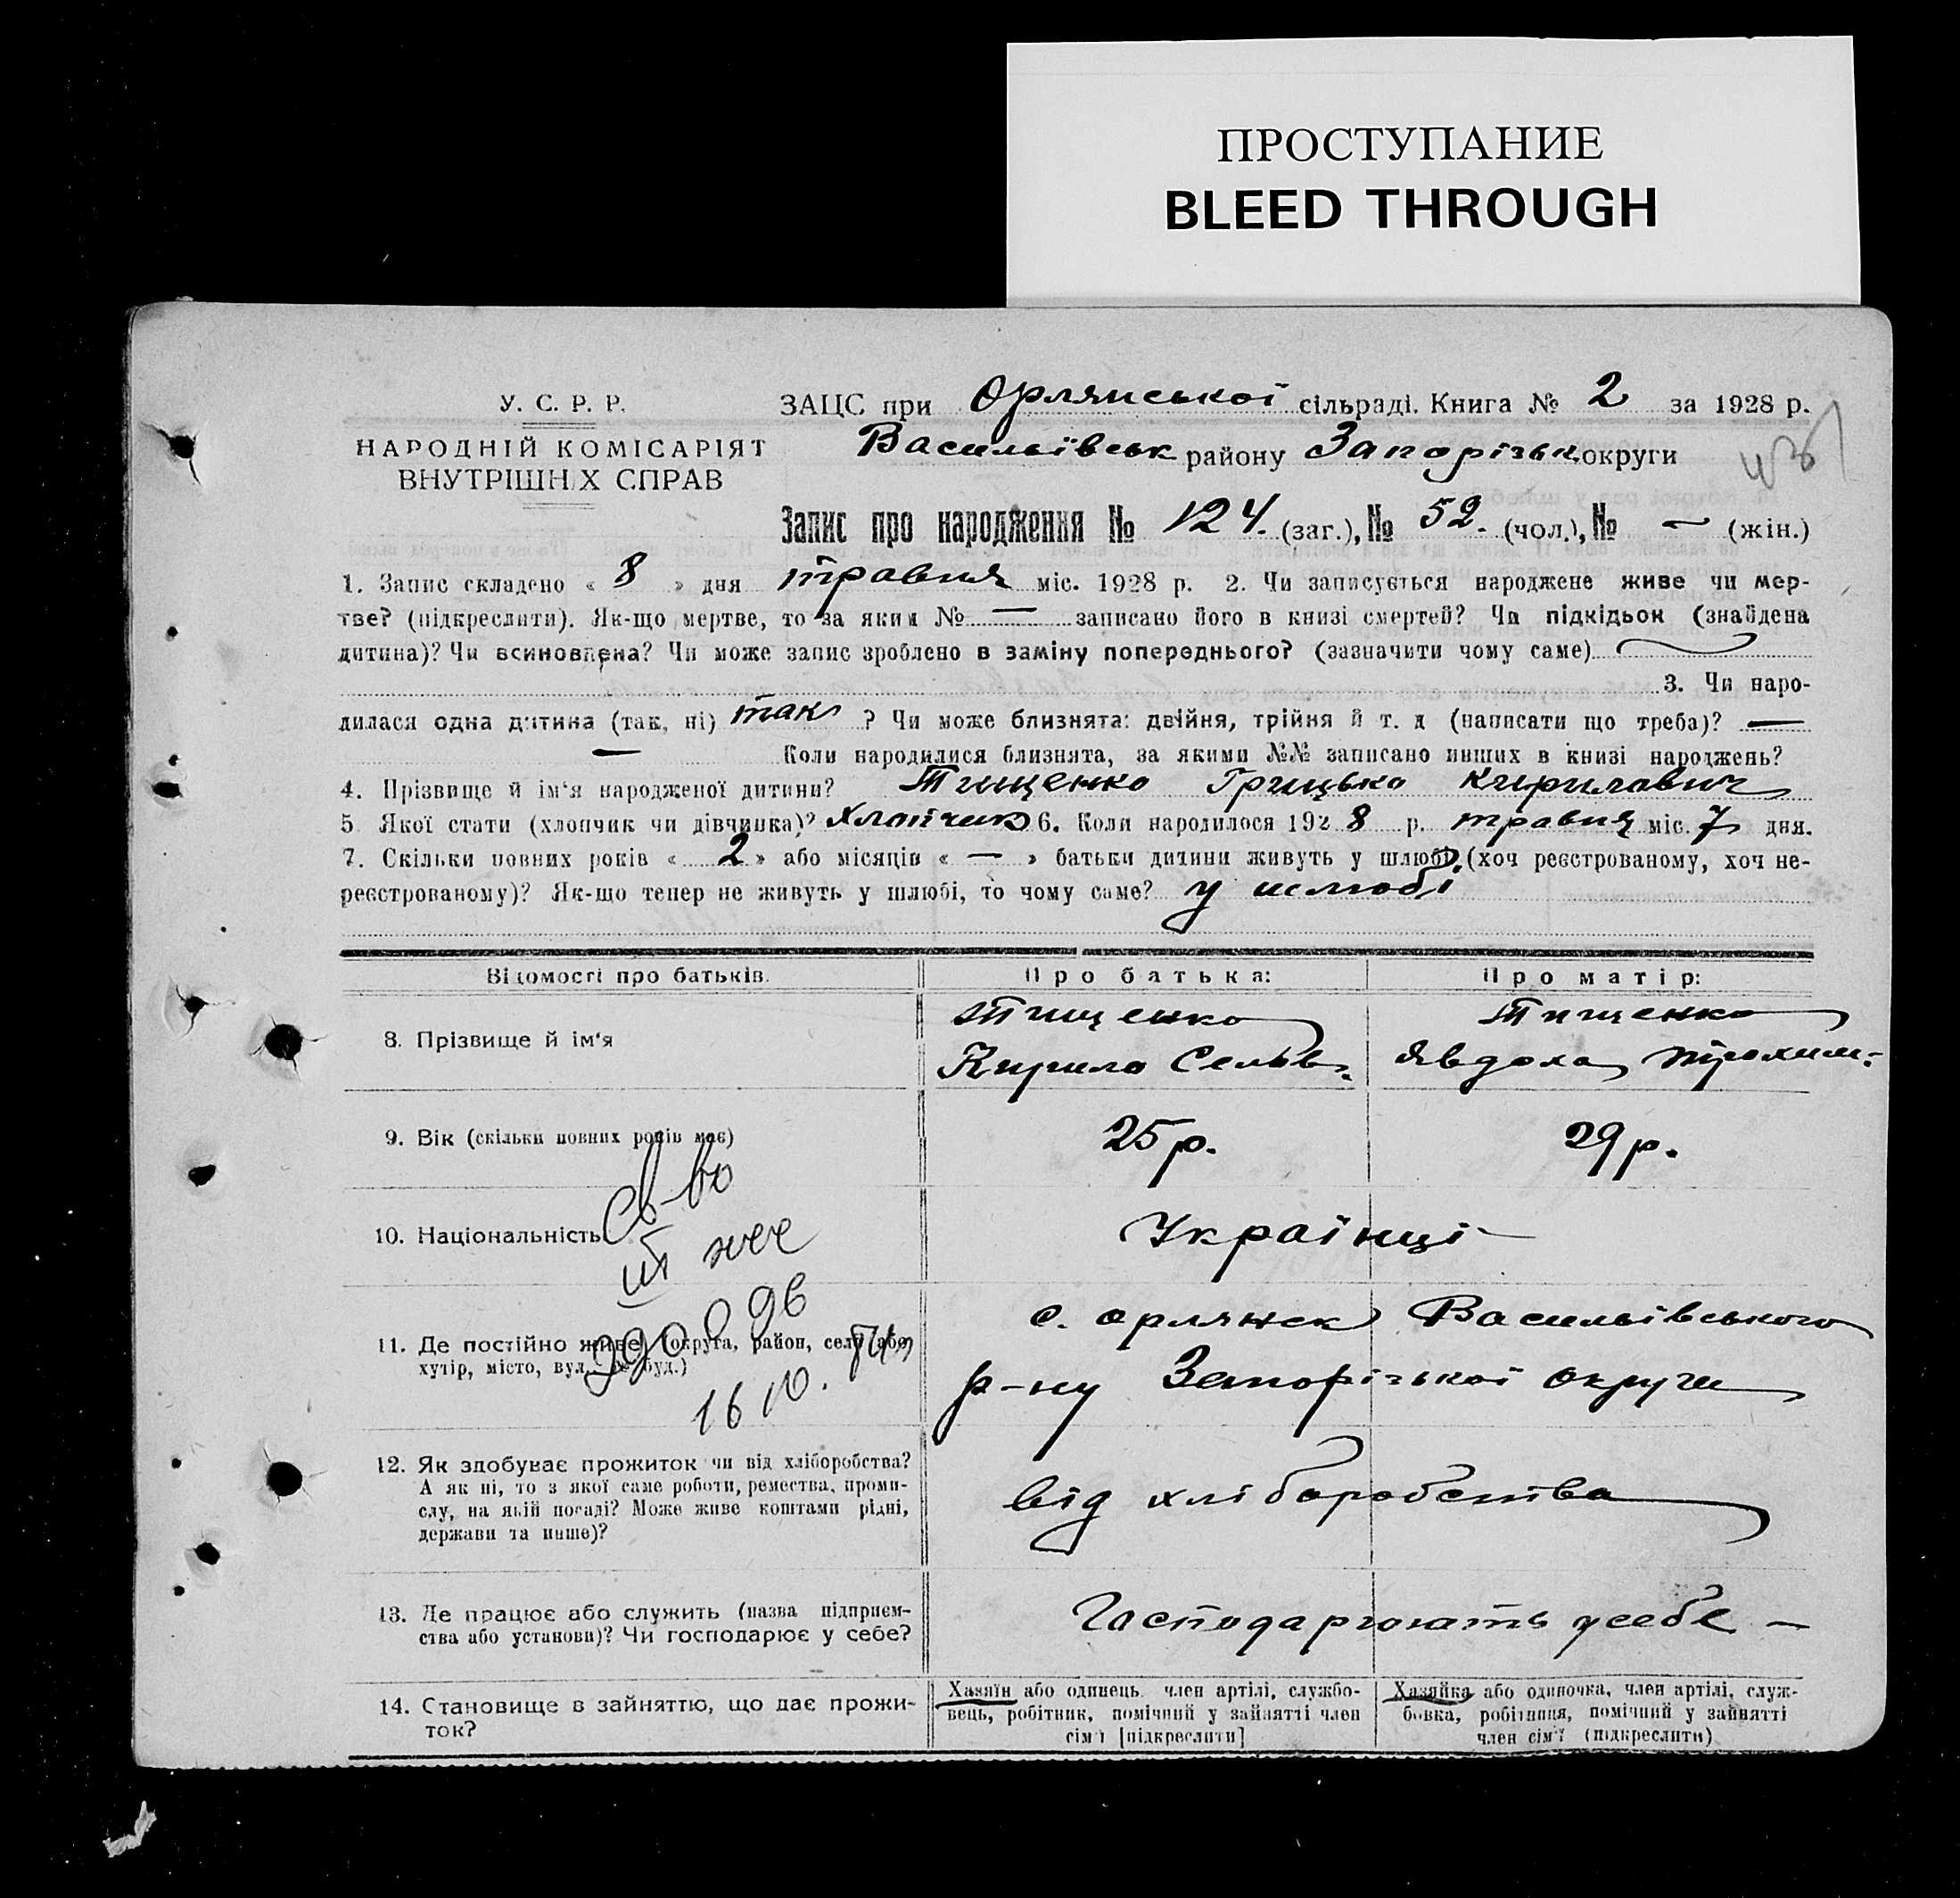 ПРОСТУПАНИЕ
BLEED THROUGH
У. С. Р. Р.
НАРОДНІЙ КОМІСАРІЯТ
ВНУТРІШНІХ СПРАВ
ЗАЦС при Орлянської сільраді. Книга № 2 за 1928 р.
Васильївськ району Запорізьк. округи
Запис про народження № 124. (заг.), № 52. (чол.), № — (жін.)
1. Запис складено « 8 » дня травня міс. 1928 р. 2. Чи записується народжене живе чи мер-
тве? (підкреслити). Як-що мертве, то за яким № — записано його в книзі смертей? Чи підкідьок (знайдена
дитина)? Чи всиновлена? Чи може запис зроблено в заміну попереднього? (зазначити чому саме)
3. Чи наро-
дилася одна дитина (так, ні) так ? Чи може близнята: двійня, трійня й т. д (написати що треба)? —
— Коли народилися близнята, за якими №№ записано инших в книзі народжень?
4. Прізвище й ім'я народженої дитини? Тищенко Грицько Кирилович
5 Якої стати (хлопчик чи дівчинка)? Хлопчик 6. Коли народилося 1928 р. травня міс. 7 дня.
7. Скільки повних років « 2 » або місяців « — » батьки дитини живуть у шлюбі (хоч реєстрованому, хоч не-
реєстрованому)? Як-що тепер не живуть у шлюбі, то чому саме? у шлюбі
Відомості про батьків. Про батька: Про матір:
8. Прізвище й ім'я
Тищенко
Кирило
Тищенко
Явдоха Трохим.
9. Вік (скільки повних років має) 25 р. 29 р.
10. Національність Українці
Св-во
16 10.
11. Де постійно живе (округа, район, село або
хутір, місто, вул., № буд.)
с. Орлянськ Васильівського
р-ну Запорізької Округи
12. Як здобуває прожиток чи від хліборобства?
А як ні, то з якої саме роботи, ремества, проми-
слу, на якій посаді? Може живе коштами рідні,
держави та инше)?
від хліборобства
13. Де працює або служить (назва підприєм-
ства або установи)? Чи господарює у себе?
Господарюють у себе —
14. Становище в зайняттю, що дає прожи-
ток?
Хазяїн або одинець, член артілі, службо-
вець, робітник, помічний у зайнятті член
сім'ї [підкреслити]
Хазяйка або одиночка, член артілі, служ-
бовка, робітниця, помічний у зайнятті
член сім'ї (підкреслити)